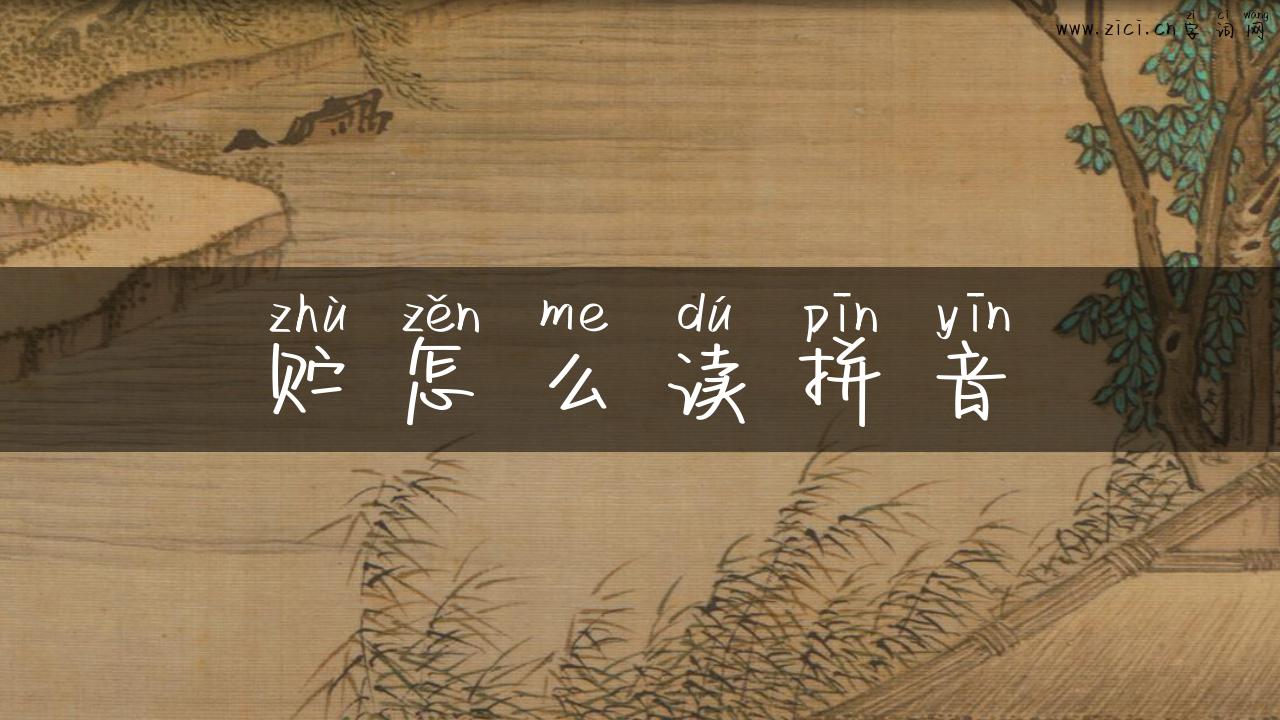 zì cí wǎng
www.zici.cn字词网
zhù zěn me dú pīn yīn
贮怎么读拼音